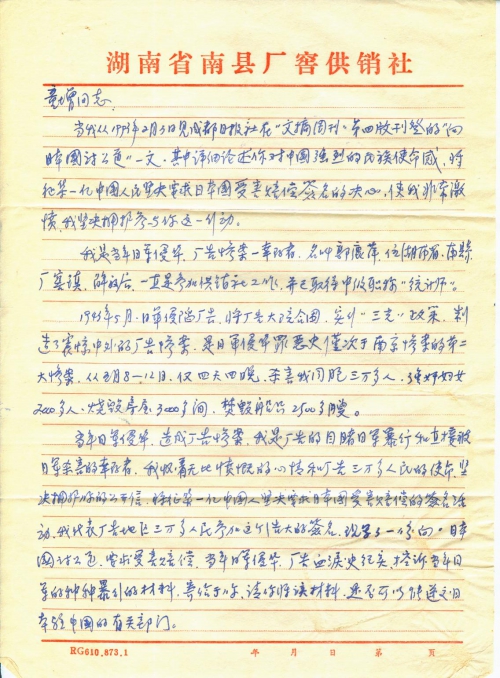 湖南省南县厂窖供销社
童增同志:
当我从1993年2月5日见成都日报社在“文摘周刊”第四版刊登的“向
日本国讨公道”一文,其中详细论述你对中国强烈的民族使命感,将
征集一亿中国人民坚决要求日本国受害赔偿签名的决心,使我非常激
愤,我坚决拥护参与你这一行动。
我是当年日军侵华,厂窖惨案一幸存者,名叫郭,住湖南省,南县
厂窖镇,解放后,一直是参加供销社工作,并已取得中级职称“统计师”。
1943年5月,日军侵占厂窖,将厂窖大包围,实行“三光”政策,制
造了震惊中外的厂窖惨案,是日军侵华罪恶史仅次于南京惨案的第二
大惨案,从五月8—12日,仅四天四晚,杀害我同胞三万多人,强奸妇女
2000多人,烧毁房屋3000多间,焚毁船只2500多艘。
当年日军侵华,造成厂窖惨案,我是厂窖的目睹日军暴行和直接被
日军杀害的幸存者,我怀着无比愤慨的心情和厂窖三万多人民的使命,坚
决拥护你的公信,将征集一亿中国人坚决要求日本国受害赔偿的签名活
动,我代表厂窖地区三万多人民参加这个浩大的签名,现写了一份向“日本
国讨公道,要求受害赔偿,当年日军侵华,厂窖血泪史纪实,控诉当年日
军的种种暴行的材料,寄给于你,请你将该材料,是否可以转送交日
本驻中国的有关部门。
RG610.873.1 年 月 日 第 页